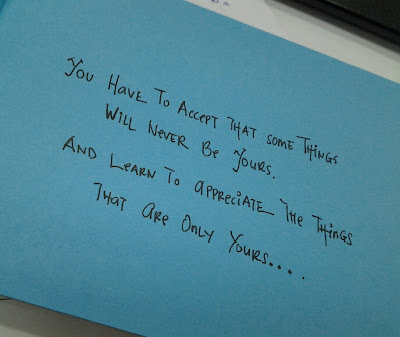 You Have To Accept That Some Things
Will Never Be Yours.
And Learn To Appreciate The Things
That Are Only Yours....